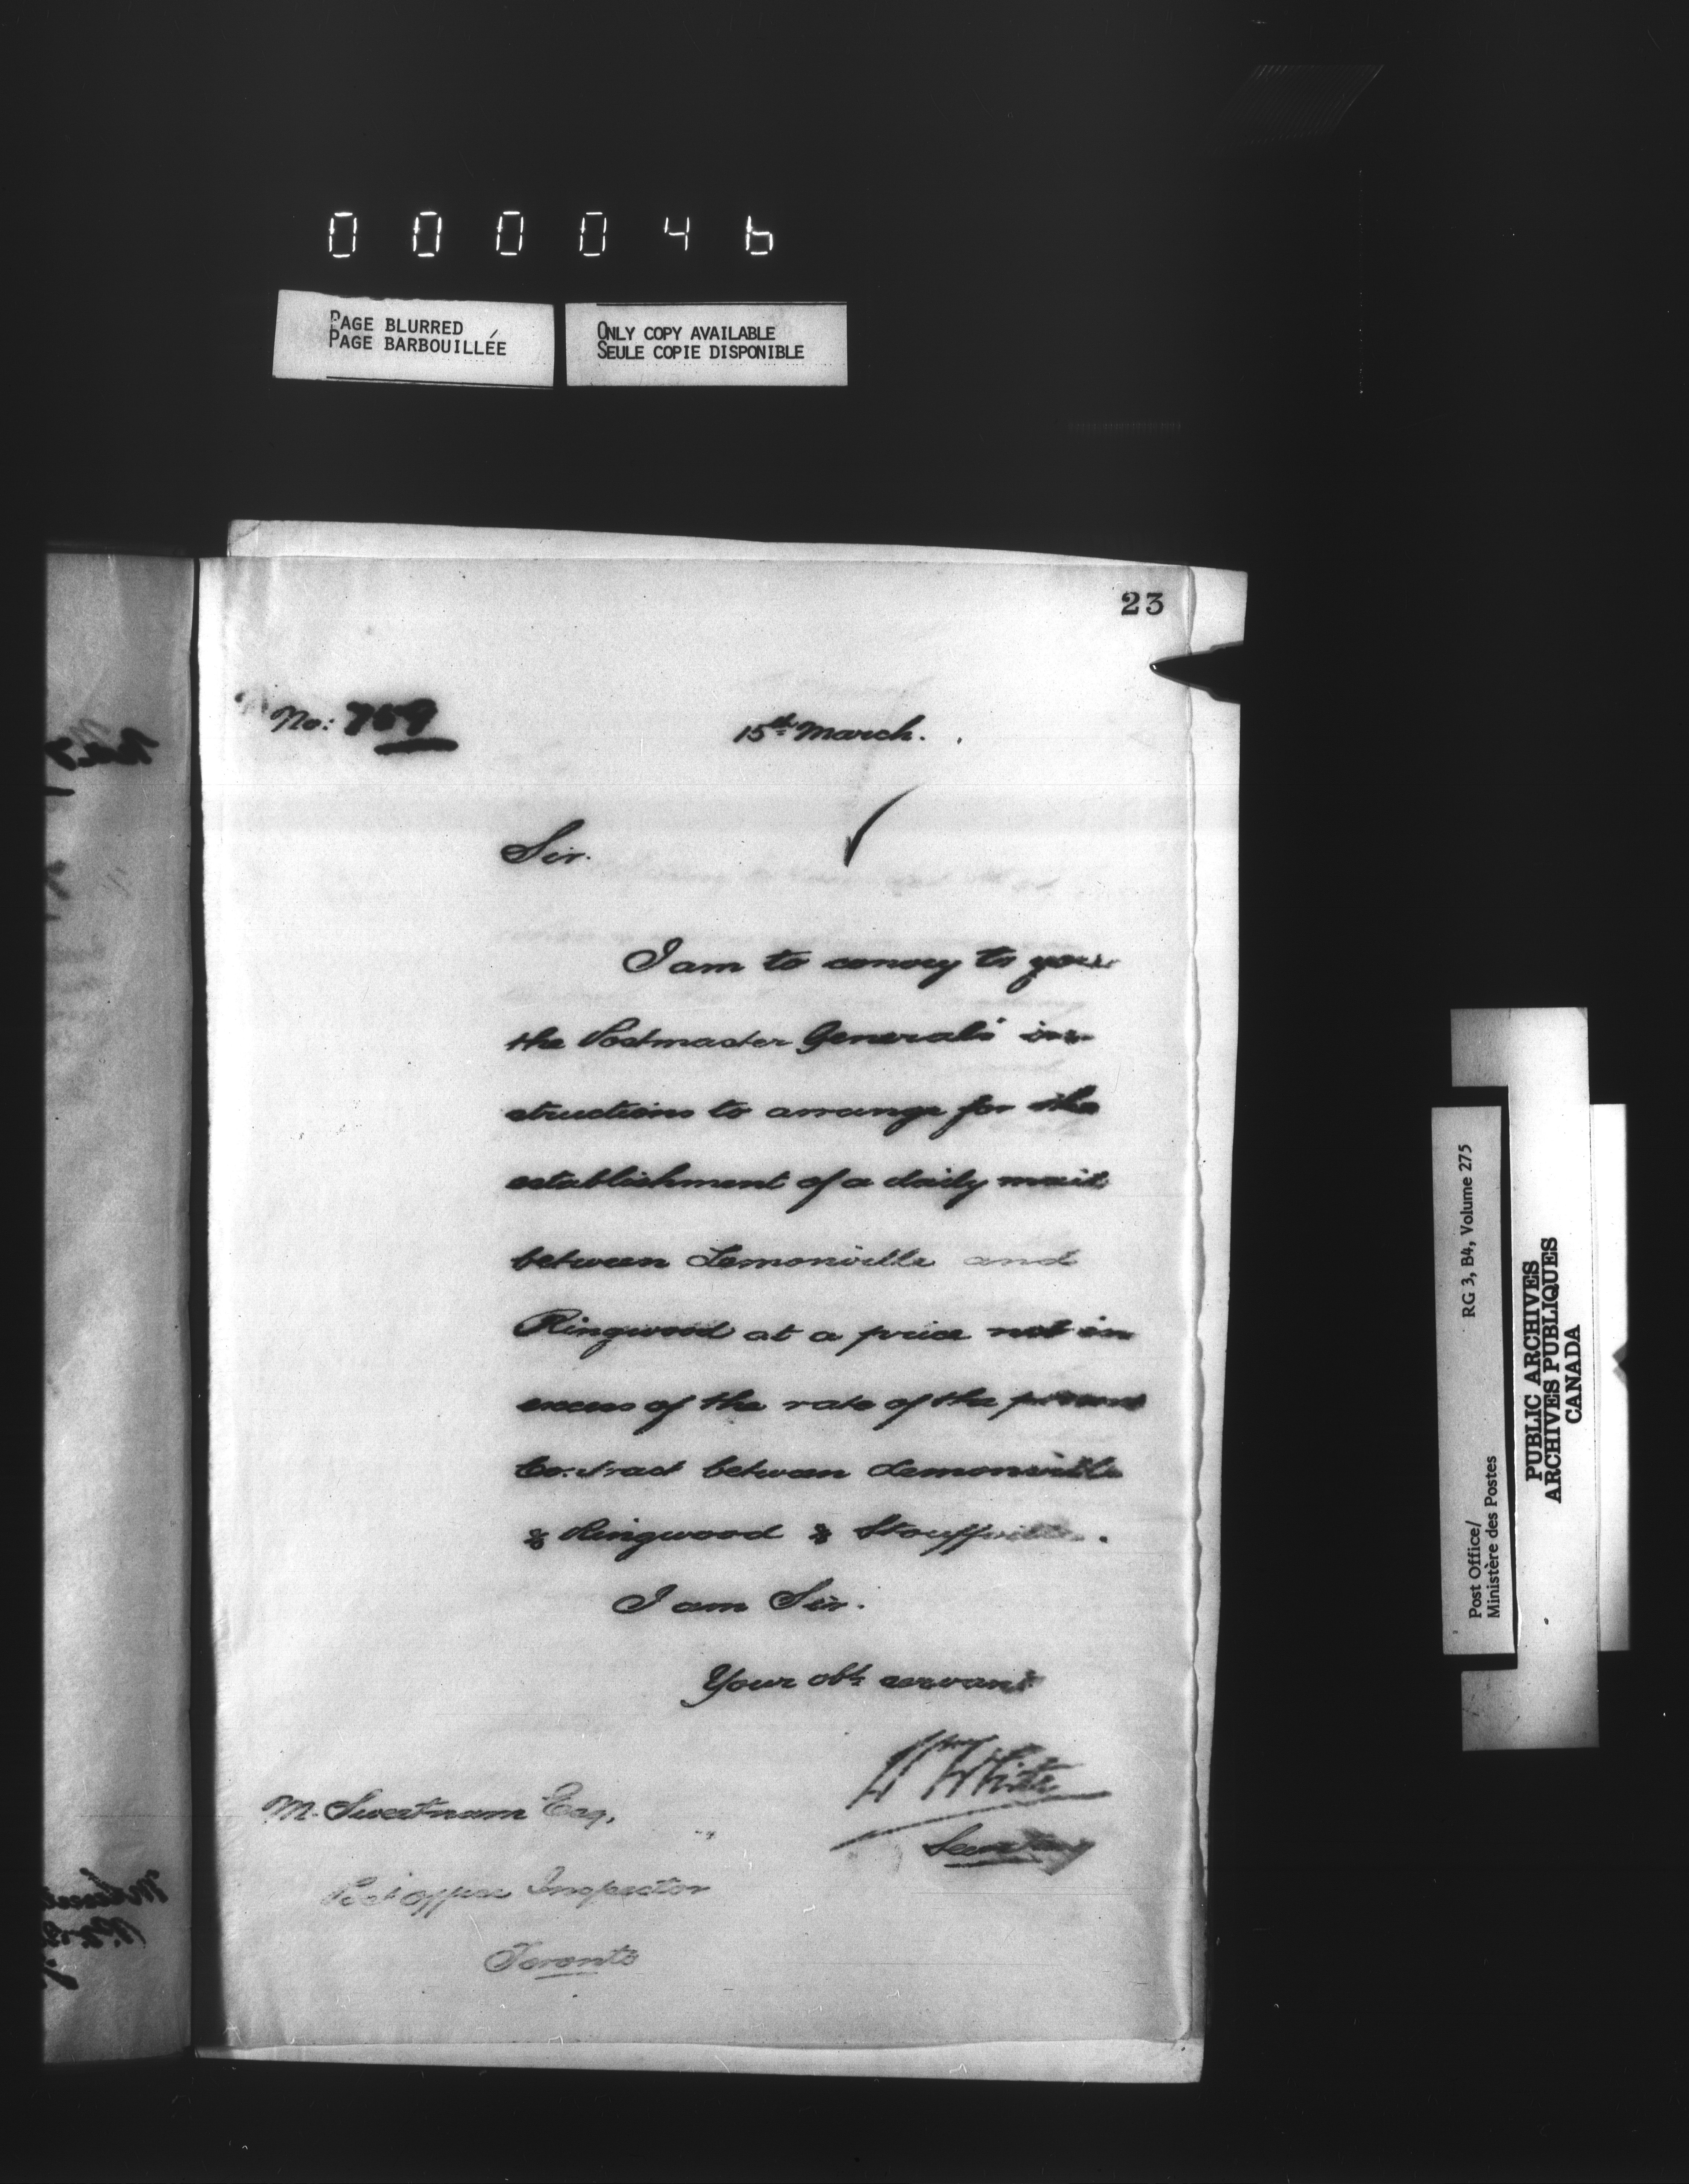 000046
PAGE BLURRED
PAGE BARBOUILLÉE
ONLY COPY AVAILABLE
SEULE COPIE DISPONIBLE
23
No: 769
15th March.
Sir.
I am to convey to you
the Postmaster General's in-
structions to arrange for the
establishment of a daily mail
between Lemonville and
Ringwood at a price not in
excess of the rate of the present
Contract between Lemonville
& Ringwood & Stouffville.
I am Sir.
Your obt servant
Wm White
Secretary
M. Sweetnam Esq,
Post Office Inspector
Toronto
RG 3, B4, Volume 275
Post Office/
Ministère des Postes
PUBLIC ARCHIVES
ARCHIVES PUBLIQUES
CANADA